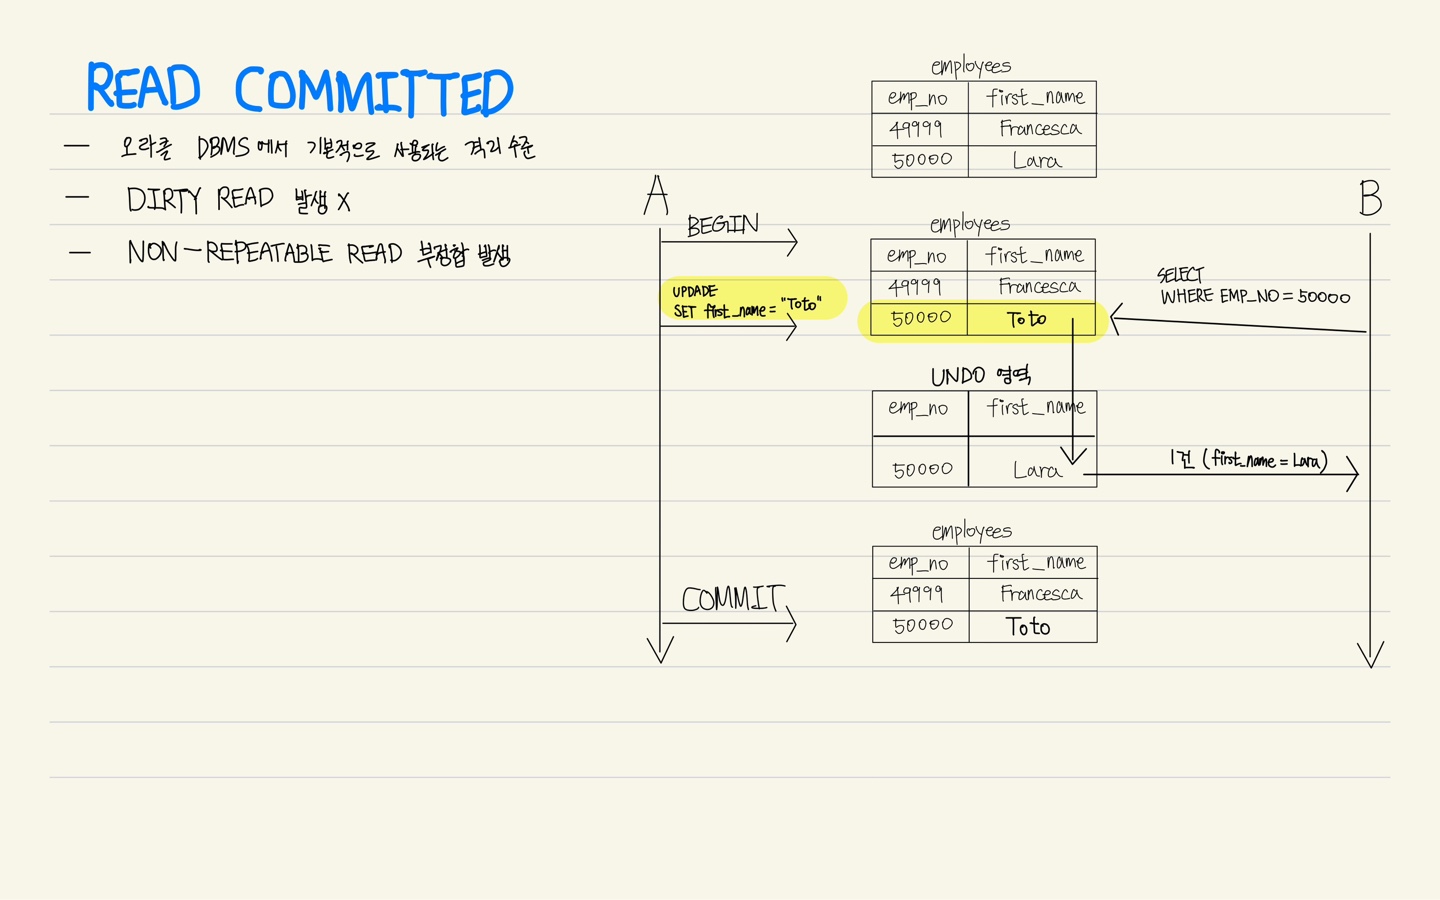 READ COMMITTED
— 오라클 DBMS에서 기본적으로 사용되는 격리 수준
— DIRTY READ 발생 X
— NON-REPEATABLE READ 부정합 발생
employees
emp_no first_name
49999 Francesca
50000 Lara
A
B
BEGIN
employees
emp_no first_name
49999 Francesca
50000 Toto
UPDADE
SET first_name = "Toto"
SELECT
WHERE EMP_NO = 50000
UNDO 영역
emp_no first_name
50000 Lara
1건 (first_name = Lara)
employees
emp_no first_name
49999 Francesca
50000 Toto
COMMIT